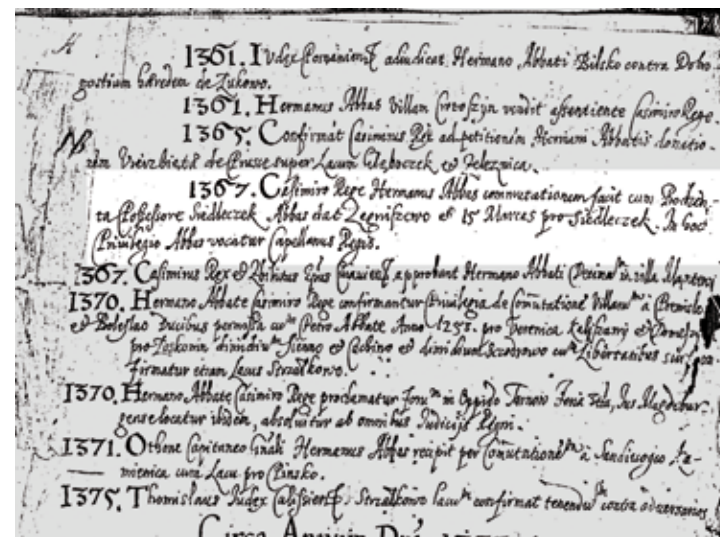 1361. Iudex Posnaniens adiudicat Hermano Abbati Bilsko contra Dobo
gostium hæredem de Zukowo.
1361. Hermanus Abbas Villam Crotoszyn vendit assentiente Casimiro Rege
1365. Confirmat Casimirus Rex ad petitionem Hermani Abbatis donatio-
NB nem Vierzbietæ de Prusse super Lacum Glęboczek et Zeleznica.
1367. Casimiro Rege Hermanus Abbas commutationem facit cum
ta Possessore Siedleczek Abbas dat Zegniszewo et 15 Marcas pro Siedleczek. In hoc
Privilegio Abbas vocatur Capellanus Regis.
1367. Casimirus Rex et approbant Hermano Abbati in villa
1370. Hermano Abbate Casimiro Rege confirmantur Privilegia de Comutatione Villarum à Premislo
et Boleslao Ducibus permissa cum Petro Abbate Anno 1258. pro et
pro et et dimidium cum Libertatibus
firmatur etiam Lacus Strzalkowo.
1370. Hermano Abbate Casimiro Rege proclamatur Forum in Oppido Ius Magdebur
gense locatur ibidem, absolvitur ab omnibus Iudicijs Regni.
1371. Othone Capitaneo Hermanus Abbas recipit per Comutationem à Sendivogio
cum Lacu pro Pinsko.
1375. Thomislaus Iudex Strzalkowo lacum confirmat contra adversarios
Circa Annum Dni